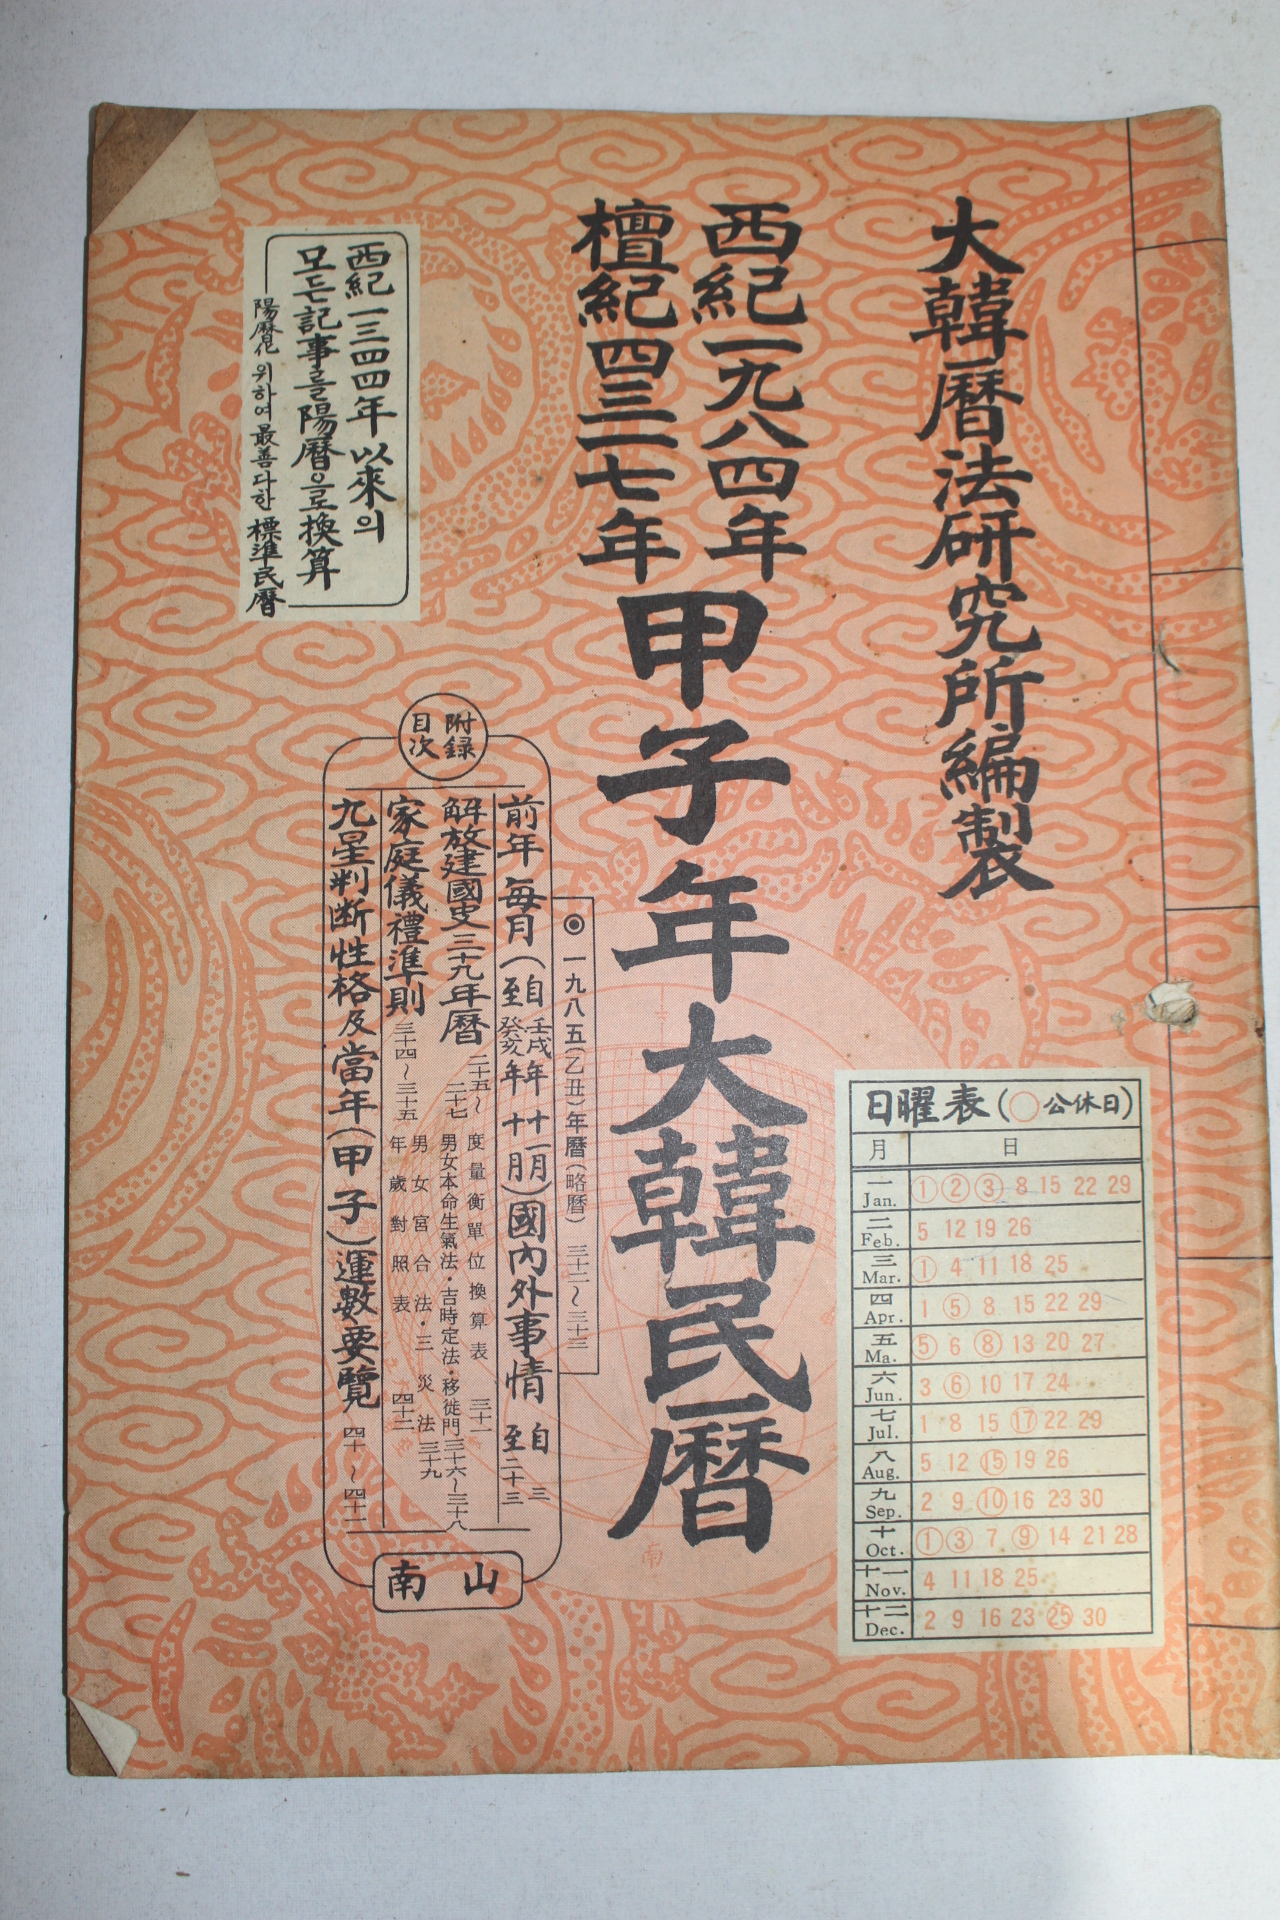 大韓曆法研究所編製
西紀一九八四年
檀紀四三一七年
甲子年大韓民曆
西紀一三四四年以來의
모든記事를陽曆으로換算
陽曆化 위하여 最善다한 標準民曆
附錄
目次
◉一九八五(乙丑)年曆(略曆) 三十二~三十三
前年每月(自壬戌年十一月
至癸亥年十月)國內外事情 自三
至二十三
解放建國史三十九年曆 二十五~
二十七
家庭儀禮準則 三十四~三十五
度量衡單位換算表 三十一
男女本命生氣法·吉時定法·移徙門 三十六~三十八
男女宮合法·三災法 三十九
年歲對照表 四十二
九星判断性格及當年(甲子)運數要覽 四十~四十一
南山
日曜表(○公休日)
月 日
一 Jan. 1 2 3 8 15 22 29
二 Feb. 5 12 19 26
三 Mar. 1 4 11 18 25
四 Apr. 1 5 8 15 22 29
五 Ma. 5 6 8 13 20 27
六 Jun. 3 6 10 17 24
七 Jul. 1 8 15 17 22 29
八 Aug. 5 12 15 19 26
九 Sep. 2 9 10 16 23 30
十 Oct. 1 3 7 9 14 21 28
十一 Nov. 4 11 18 25
十二 Dec. 2 9 16 23 25 30
南